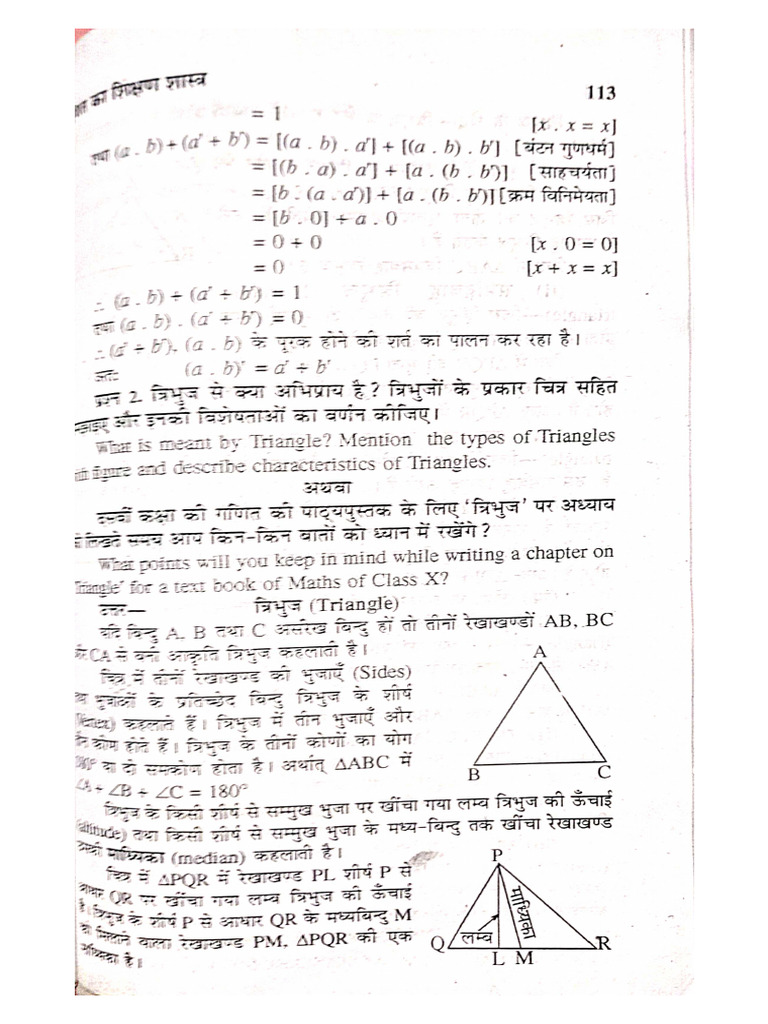 का शिक्षण शास्त्र 113
= 1 [x . x = x]
तथा (a . b) + (a′ + b′) = [(a . b) . a′] + [(a . b) . b′] [बंटन गुणधर्म]
= [(b . a) . a′] + [a . (b . b′)] [साहचर्यता]
= [b . (a . a′)] + [a . (b . b′)] [क्रम विनिमेयता]
= [b . 0] + a . 0
= 0 + 0 [x . 0 = 0]
= 0 [x + x = x]
∴ (a . b) + (a′ + b′) = 1
तथा (a . b) . (a′ + b′) = 0
∴ (a′ + b′), (a . b) के पूरक होने की शर्त का पालन कर रहा है।
अतः (a . b)′ = a′ + b′
प्रश्न 2. त्रिभुज से क्या अभिप्राय है ? त्रिभुजों के प्रकार चित्र सहित
और इनकी विशेषताओं का वर्णन कीजिए।
What is meant by Triangle? Mention the types of Triangles
figure and describe characteristics of Triangles.
अथवा
दसवीं कक्षा की गणित की पाठ्यपुस्तक के लिए ‘त्रिभुज’ पर अध्याय
लिखते समय आप किन-किन बातों को ध्यान में रखेंगे ?
What points will you keep in mind while writing a chapter on
Triangle’ for a text book of Maths of Class X?
उत्तर— त्रिभुज (Triangle)
यदि बिन्दु A, B तथा C असरेख बिन्दु हों तो तीनों रेखाखण्डों AB, BC
CA से बनी आकृति त्रिभुज कहलाती है।
चित्र में तीनों रेखाखण्ड की भुजाएँ (Sides)
भुजाओं के प्रतिच्छेद बिन्दु त्रिभुज के शीर्ष
(Vertex) कहलाते हैं। त्रिभुज में तीन भुजाएँ और
तीन कोण होते हैं। त्रिभुज के तीनों कोणों का योग
180° या दो समकोण होता है। अर्थात् ΔABC में
∠A + ∠B + ∠C = 180°
A
B C
त्रिभुज के किसी शीर्ष से सम्मुख भुजा पर खींचा गया लम्ब त्रिभुज की ऊँचाई
(altitude) तथा किसी शीर्ष से सम्मुख भुजा के मध्य-बिन्दु तक खींचा रेखाखण्ड
उसकी माध्यिका (median) कहलाती है।
चित्र में ΔPQR में रेखाखण्ड PL शीर्ष P से
आधार QR पर खींचा गया लम्ब त्रिभुज की ऊँचाई
है। त्रिभुज के शीर्ष P से आधार QR के मध्यबिन्दु M
को मिलाने वाला रेखाखण्ड PM, ΔPQR की एक
माध्यिका है।
P
माध्यिका
लम्ब
Q R
L M